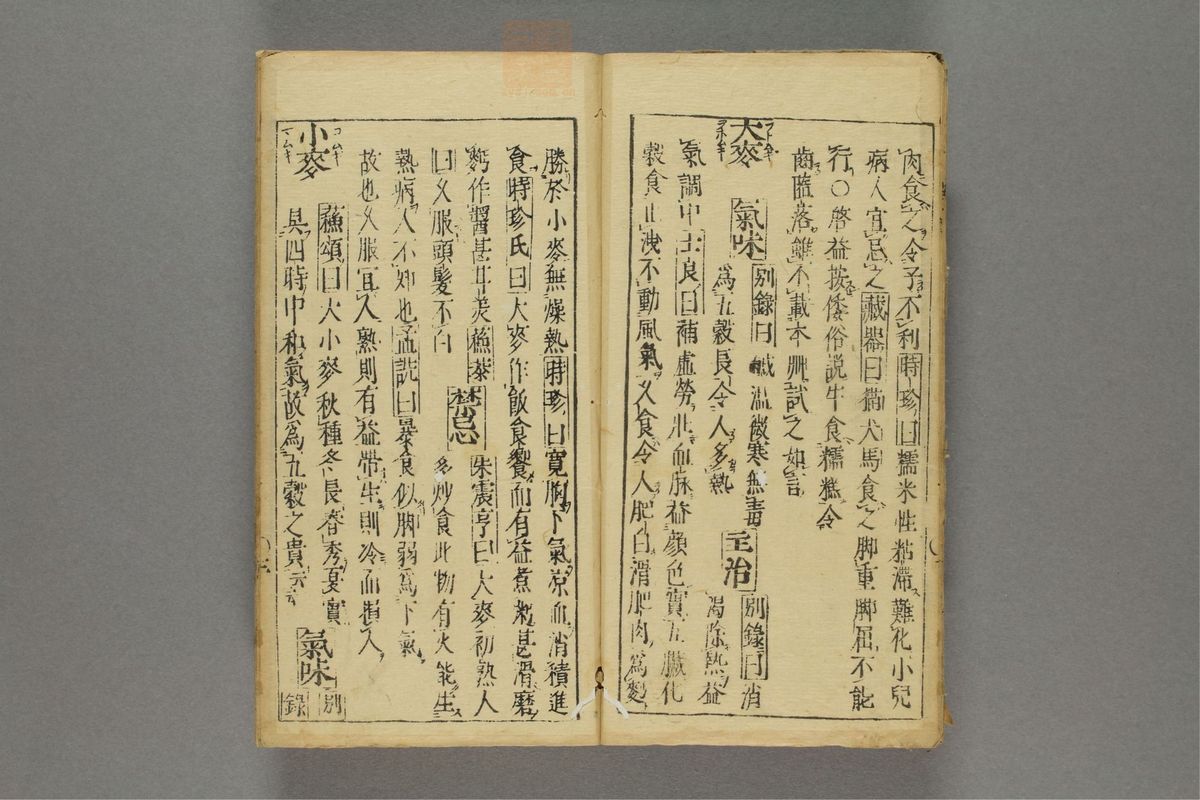 肉食之令子不利時珍曰糯米性粘滯難化小兒
病人宜忌之藏器曰猫犬馬食之脚重脚屈不能
行〇啓益按倭俗説牛食糯糕令
齒隘落雖不載本艸試之如言
大麥
フトムギ
氣味
別錄曰鹹溫微寒無毒
爲五穀長令人多熱
主治
別錄曰消
渴除熱益
氣調中士良曰補虛勞壯血脉益顏色實五臟化
穀食止洩不動風氣久食令人肥白滑肥肉爲麪
勝於小麥無燥熱時珍曰寬胸下氣凉血消積進
食時珍氏曰大麥作飯食饗而有益煮粥甚滑磨
麪作醬甚甘美蘇恭
曰久服頭髮不白
禁忌
朱震亨曰大麥初熟人
多炒食此物有火能生
熱病人不知也孟詵曰暴食似脚弱爲下氣
故也久服宜人熟則有益帶生則冷而損人
小麥
コムギ
マムギ
蘇頌曰大小麥秋種冬長春秀夏實
具四時中和氣故爲五穀之貴云云
氣味
別
錄